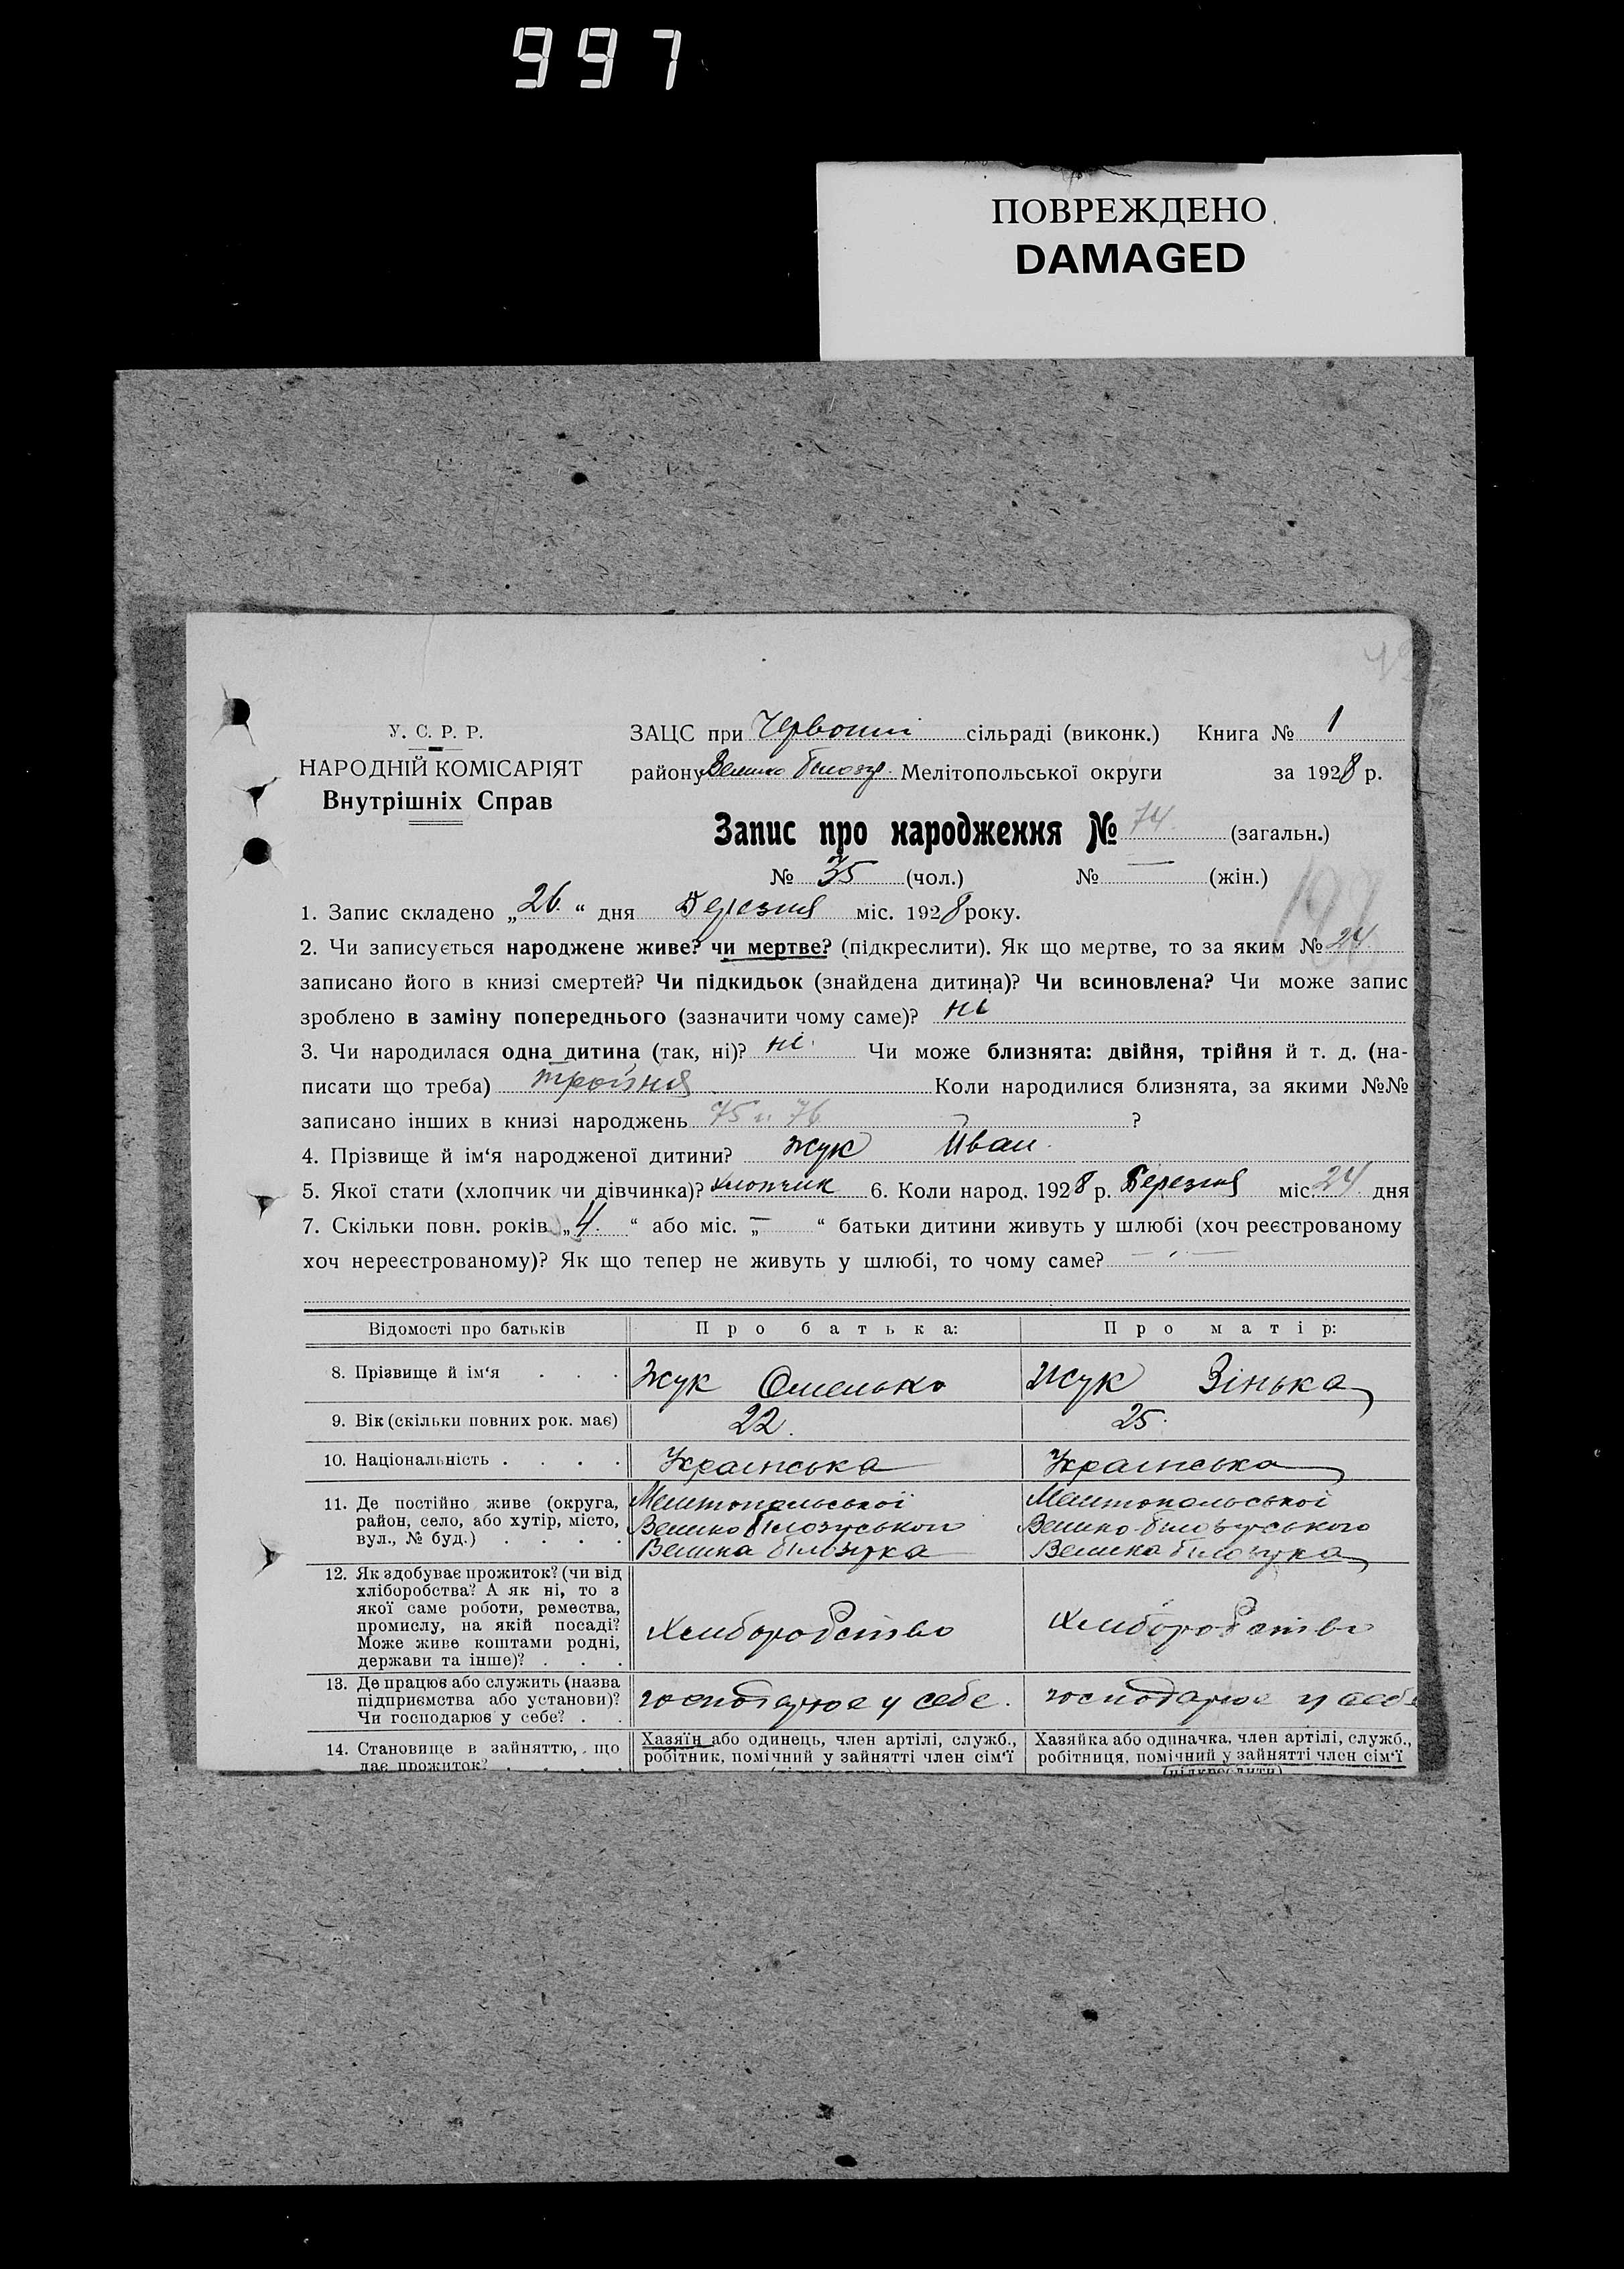 997
ПОВРЕЖДЕНО
DAMAGED
У. С. Р. Р.
НАРОДНІЙ КОМІСАРІЯТ
Внутрішніх Справ
ЗАЦС при Червоній сільраді (виконк.) Книга № 1
району Велико Білозр. Мелітопольської округи за 1928 р.
Запис про народження № 74 (загальн.)
№ 35 (чол.) № — (жін.)
1. Запис складено „26“ дня Березня міс. 1928 року.
2. Чи записується народжене живе? чи мертве? (підкреслити). Як що мертве, то за яким № 24
записано його в книзі смертей? Чи підкидьок (знайдена дитина)? Чи всиновлена? Чи може запис
зроблено в заміну попереднього (зазначити чому саме)? ні
3. Чи народилася одна дитина (так, ні)? ні. Чи може близнята: двійня, трійня й т. д. (на-
писати що треба) тройня Коли народилися близнята, за якими №№
записано інших в книзі народжень 75 и 76 ?
4. Прізвище й ім‘я народженої дитини? Жук Иван.
5. Якої стати (хлопчик чи дівчинка)? хлопчик 6. Коли народ. 1928 р. Березня міс. 24 дня
7. Скільки повн. років „4.“ або міс. „—“ батьки дитини живуть у шлюбі (хоч реєстрованому
хоч нереєстрованому)? Як що тепер не живуть у шлюбі, то чому саме? —
Відомості про батьків Про батька: Про матір:
8. Прізвище й ім‘я . . . Жук Омелько Жук Зінька
9. Вік (скільки повних рок. має) 22. 25.
10. Національність . . . . Українська Українська
11. Де постійно живе (округа, Мелітопольської Мелітопольської
район, село, або хутір, місто, Велико Білозуського Велико-Білозуського
вул., № буд.) . . . . Велика Білозурка Велика Білозурка
12. Як здобуває прожиток? (чи від
хліборобства? А як ні, то з
якої саме роботи, ремества,
промислу, на якій посаді? Хліборобство Хліборобство
Може живе коштами родні,
держави та інше)? . . .
13. Де працює або служить (назва
підприємства або установи)? господарює у себе. господарює у себе
Чи господарює у себе? . .
14. Становище в зайняттю, що Хазяїн або одинець, член артілі, служб., Хазяйка або одиначка, член артілі, служб.,
дає прожиток? . . . . робітник, помічний у зайнятті член сім‘ї робітниця, помічний у зайнятті член сім‘ї
(підкреслити)